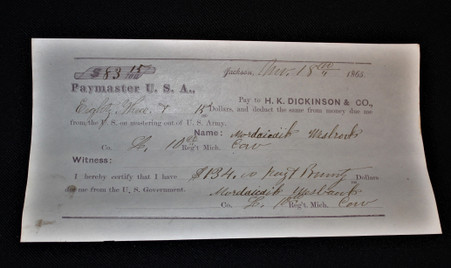 $83 15/100
Jackson, Nov. 18th 1865
Paymaster U. S. A.,
Pay to H. K. DICKINSON & CO.,
Eighty Three & 15 Dollars, and deduct the same from money due me
from the U. S. on mustering out of U. S. Army.
Name:
Co. L, 10th Reg't Mich. Cav
Witness:
I hereby certify that I have $134.00 Bounty Dollars
due me from the U. S. Government.
Co. L. Reg't. Mich. Cav